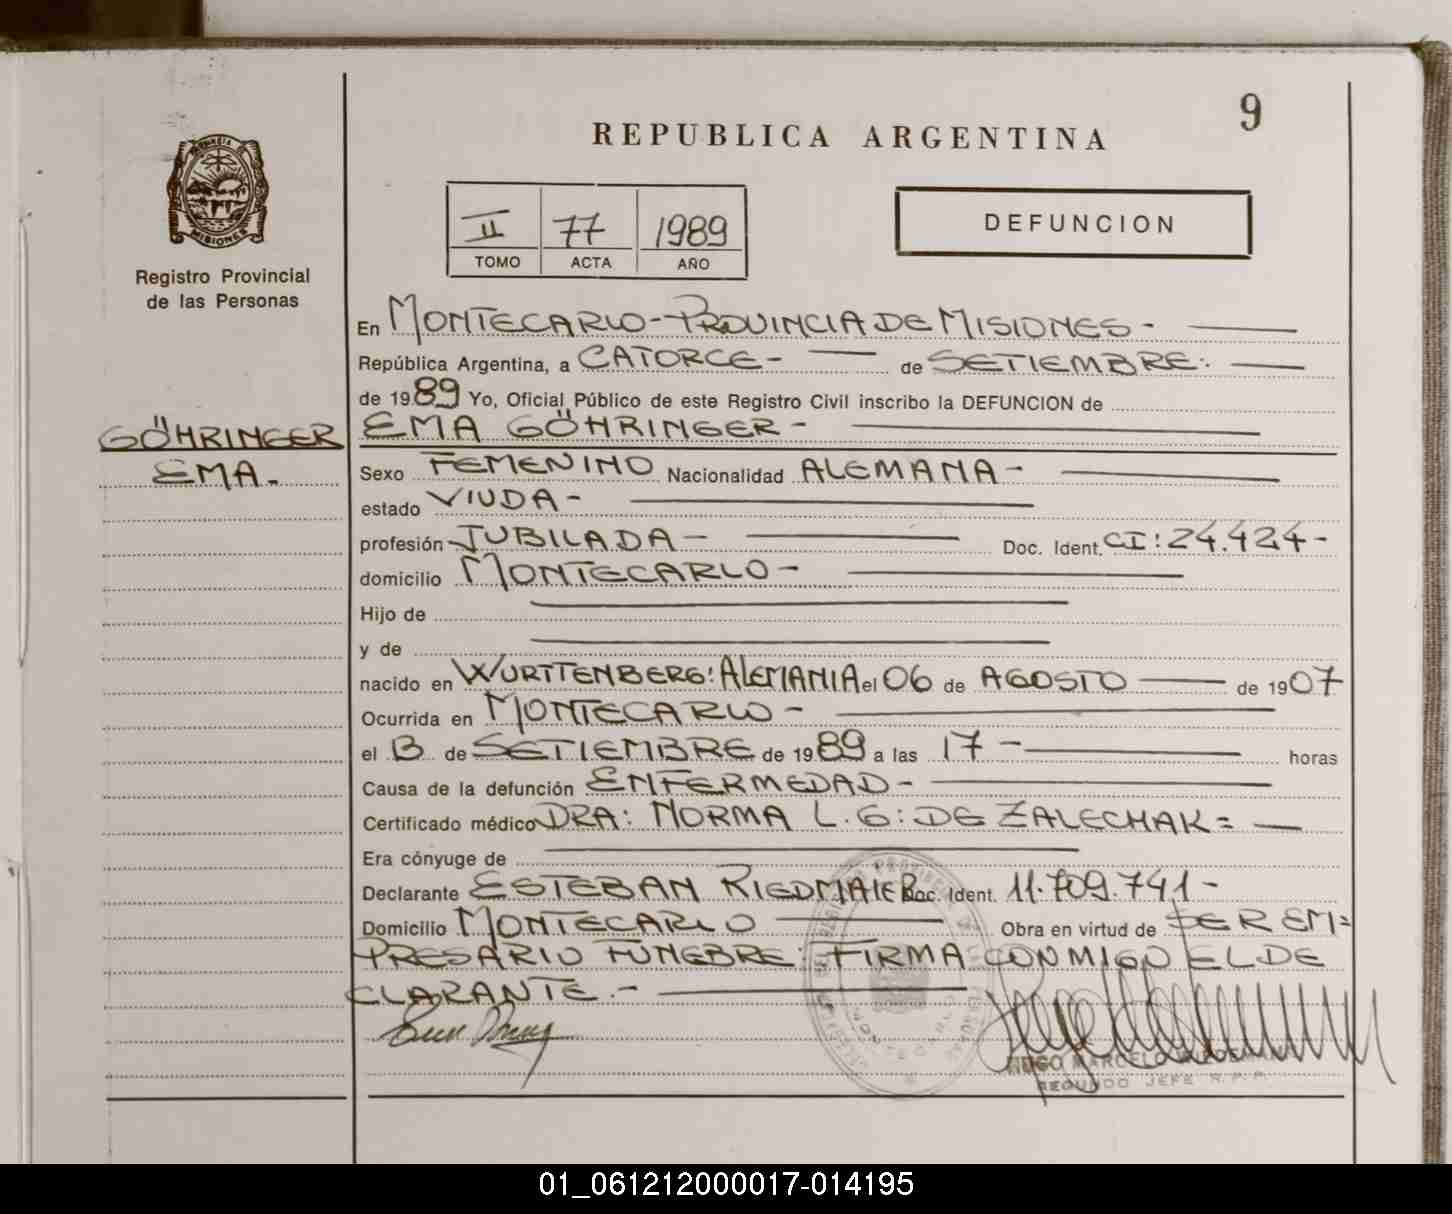 9
REPUBLICA ARGENTINA
II 77 1989
TOMO ACTA AÑO
DEFUNCION
MISIONES
Registro Provincial
de las Personas
GÖHRINGER
EMA.
En MONTECARLO-PROVINCIA DE MISIONES-
República Argentina, a CATORCE- de SETIEMBRE:
de 1989 Yo, Oficial Público de este Registro Civil inscribo la DEFUNCION de
EMA GÖHRINGER-
Sexo FEMENINO Nacionalidad ALEMANA-
estado VIUDA-
profesión JUBILADA- Doc. Ident. CI: 24.424-
domicilio MONTECARLO-
Hijo de
y de
nacido en WURTTENBERG: ALEMANIA el 06 de AGOSTO de 1907
Ocurrida en MONTECARLO-
el 13 de SETIEMBRE de 1989 a las 17- horas
Causa de la defunción ENFERMEDAD-
Certificado médico DRA: NORMA L. G: DE ZALECHAK=
Era cónyuge de
Declarante ESTEBAN RIEDMAIER Doc. Ident. 11.709.741-
Domicilio MONTECARLO Obra en virtud de SER EM=
PRESARIO FUNEBRE: FIRMA CONMIGO EL DE
CLARANTE.-
MONTECARLO
HUGO MARCELO
SEGUNDO JEFE R.P.P.
01_061212000017-014195